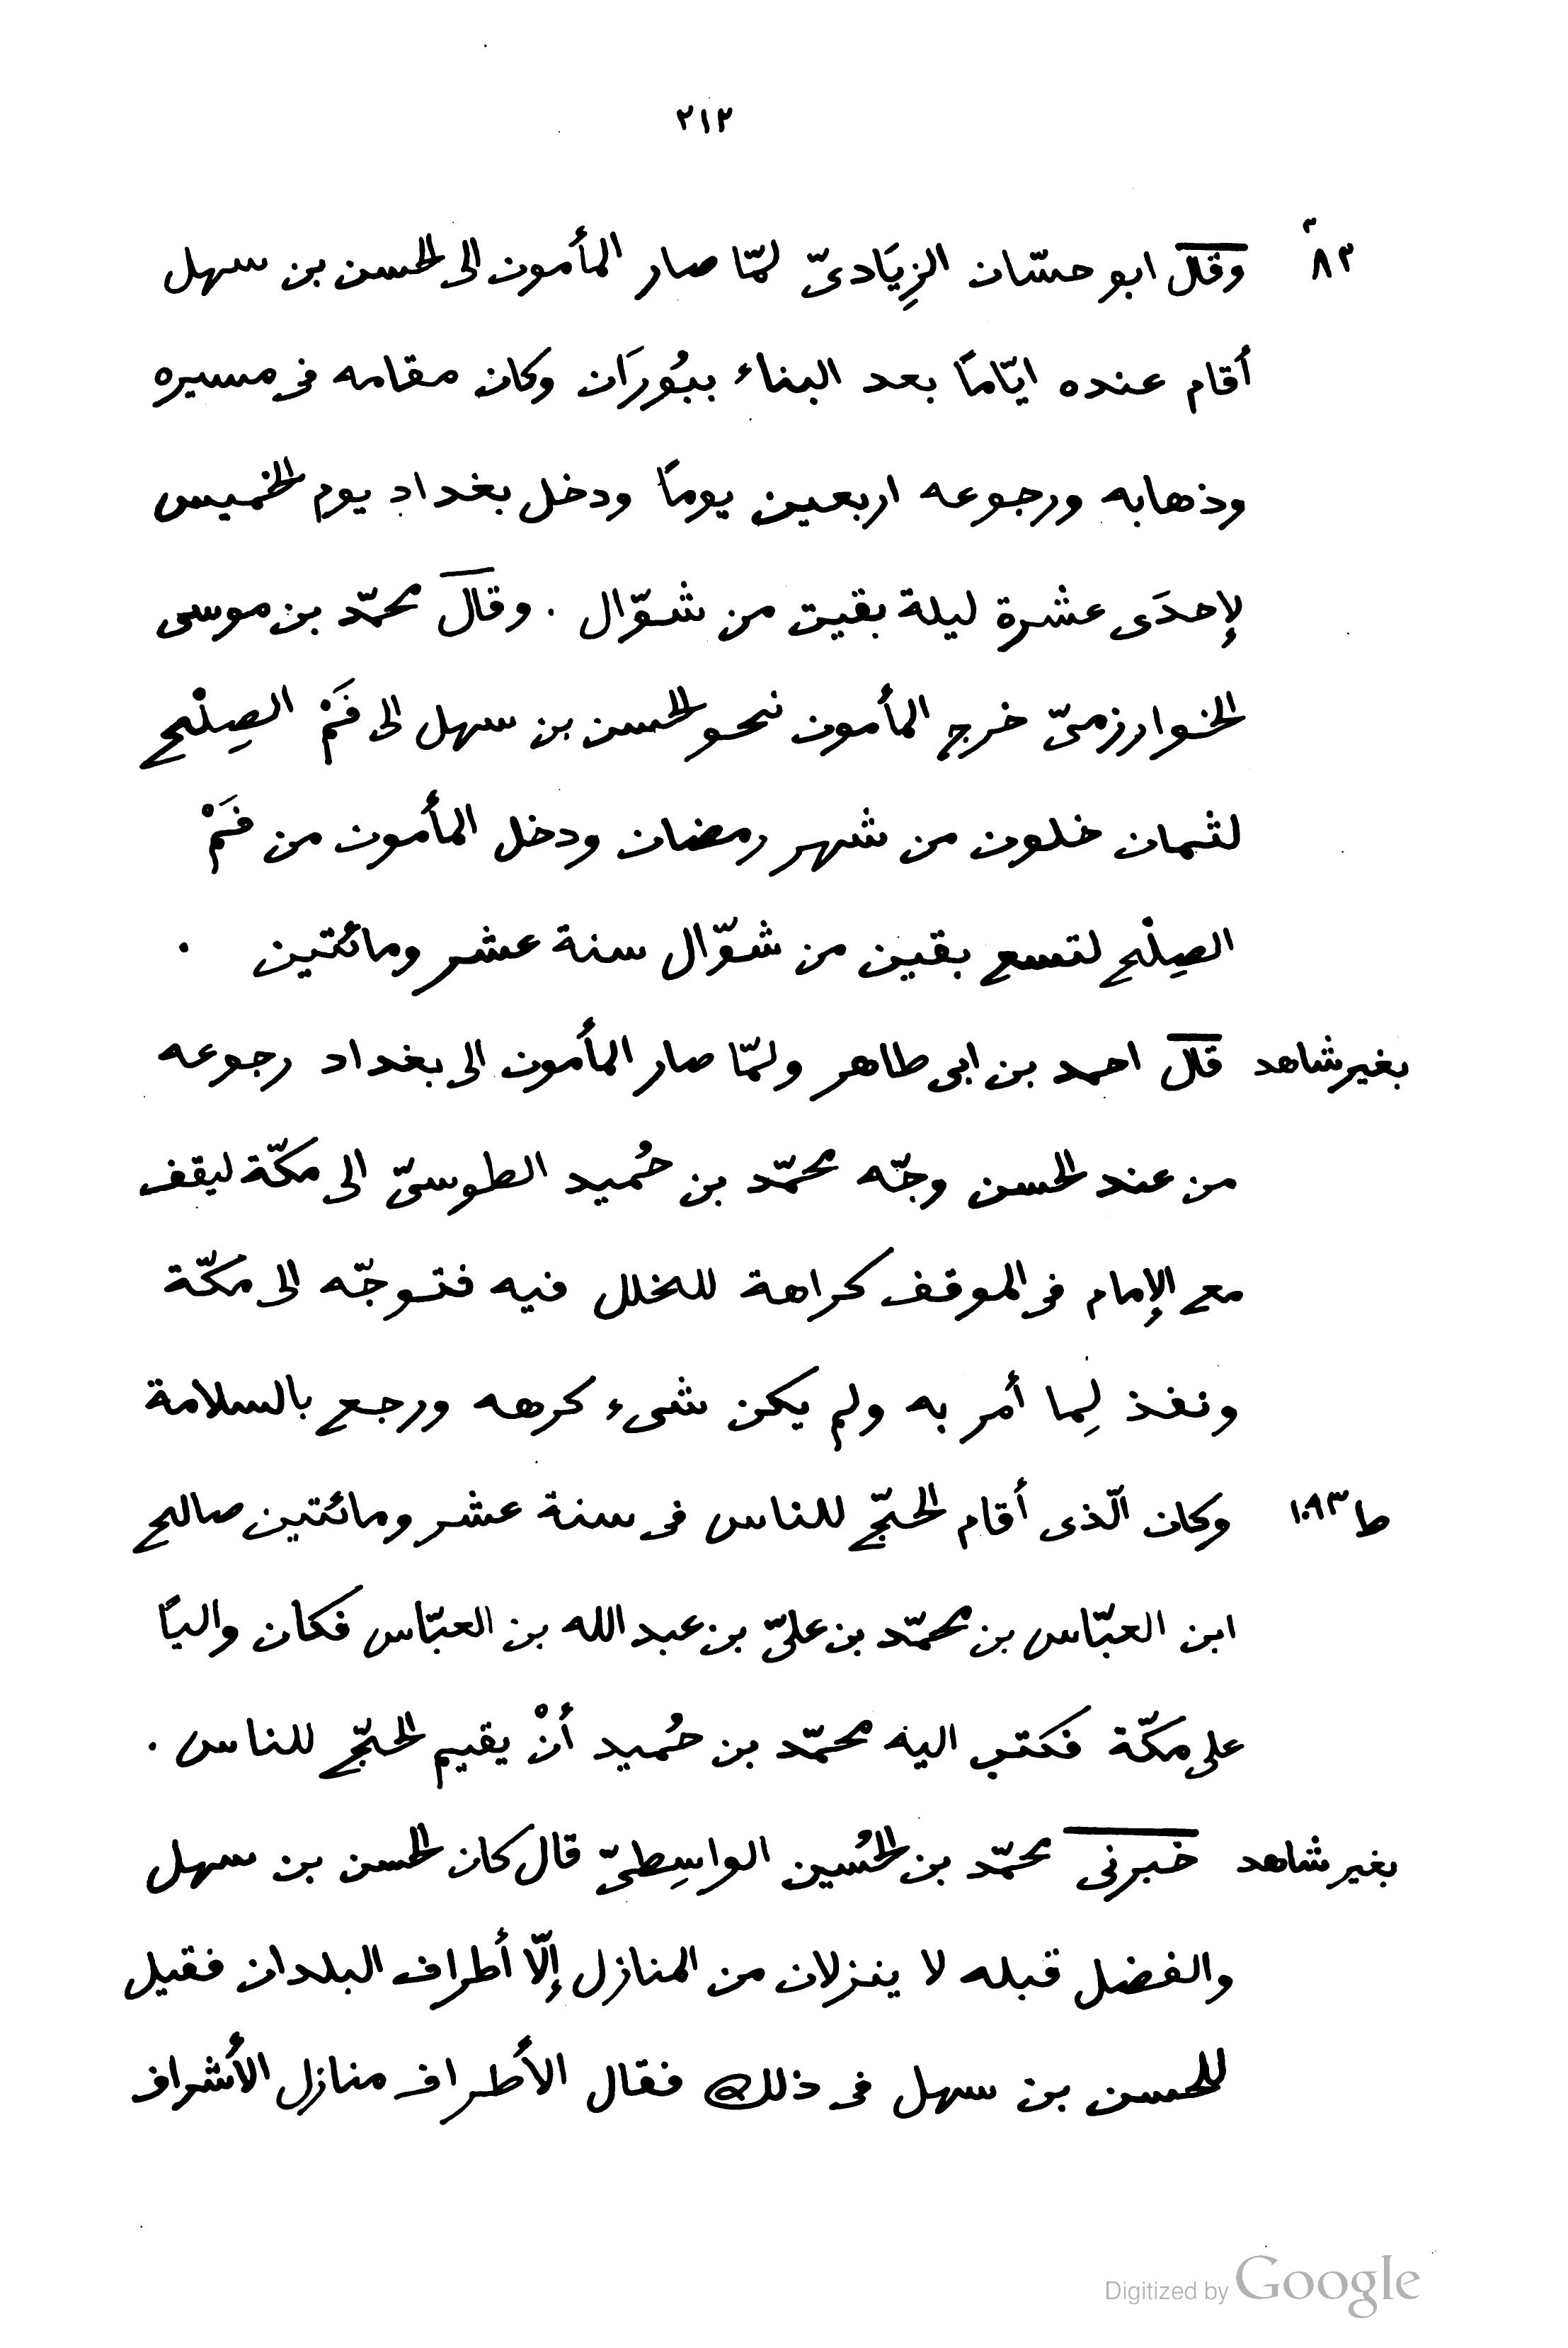 ٢١٢
٨٢ وقال ابو حسّان الزِيَادىّ لمّا صار المأمون الى الحسن بن سهل
أقام عنده ايّامًا بعد البناء ببُورَان وكان مقامه فى مسيره
وذهابه ورجوعه اربعين يومًا ودخل بغداد يوم الخميس
لإحدَى عشرة ليلة بقيت من شوّال . وقال محمّد بن موسى
الخوارزمىّ خرج المأمون نحو الحسن بن سهل الى فَمْ الصِلْح
لثمان خلون من شهر رمضان ودخل المأمون من فَمْ
الصِلْح لتسع بقين من شوّال سنة عشر ومائتين .
بغير شاهد قال احمد بن ابى طاهر ولمّا صار المأمون الى بغداد رجوعه
من عند الحسن وجّه محمّد بن حُميد الطوسىّ الى مكّة ليقف
مع الإمام فى الموقف كراهة للخلل فيه فتوجّه الى مكّة
ونفذ لِما أمر به ولم يكن شىء كرهه ورجع بالسلامة
ط ١٠٩٣ وكان الّذى أقام الحجّ للناس فى سنة عشر ومائتين صالح
ابن العبّاس بن محمّد بن علىّ بن عبد الله بن العبّاس فكان واليًا
على مكّة فكتب اليه محمّد بن حُميد أنْ يقيم الحجّ للناس .
بغير شاهد خبرنى محمّد بن الحُسين الواسِطىّ قال كان الحسن بن سهل
والفضل قبله لا ينزلان من المنازل إلّا أطراف البلدان فقيل
للحسن بن سهل فى ذلك فقال الأطراف منازل الأشراف
Digitized by Google